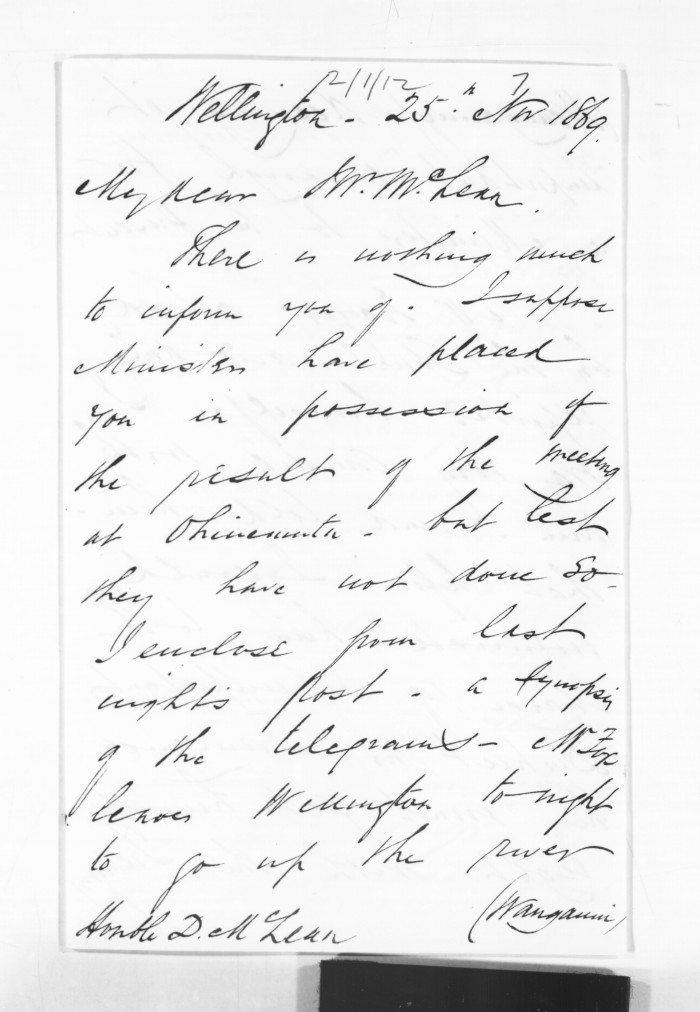 Wellington - 25th Nov 1869.
My dear Mr. McLean.
There is nothing much
to inform you of. I suppose
Ministers have placed
you in possession of
the result of the meeting
at Ohinemuta - but lest
they have not done so -
I enclose from last
night's Post - a synopsis
of the telegrams - Mr Fox
leaves Wellington to-night
to go up the river
(Wanganui)
Honble D. McLean